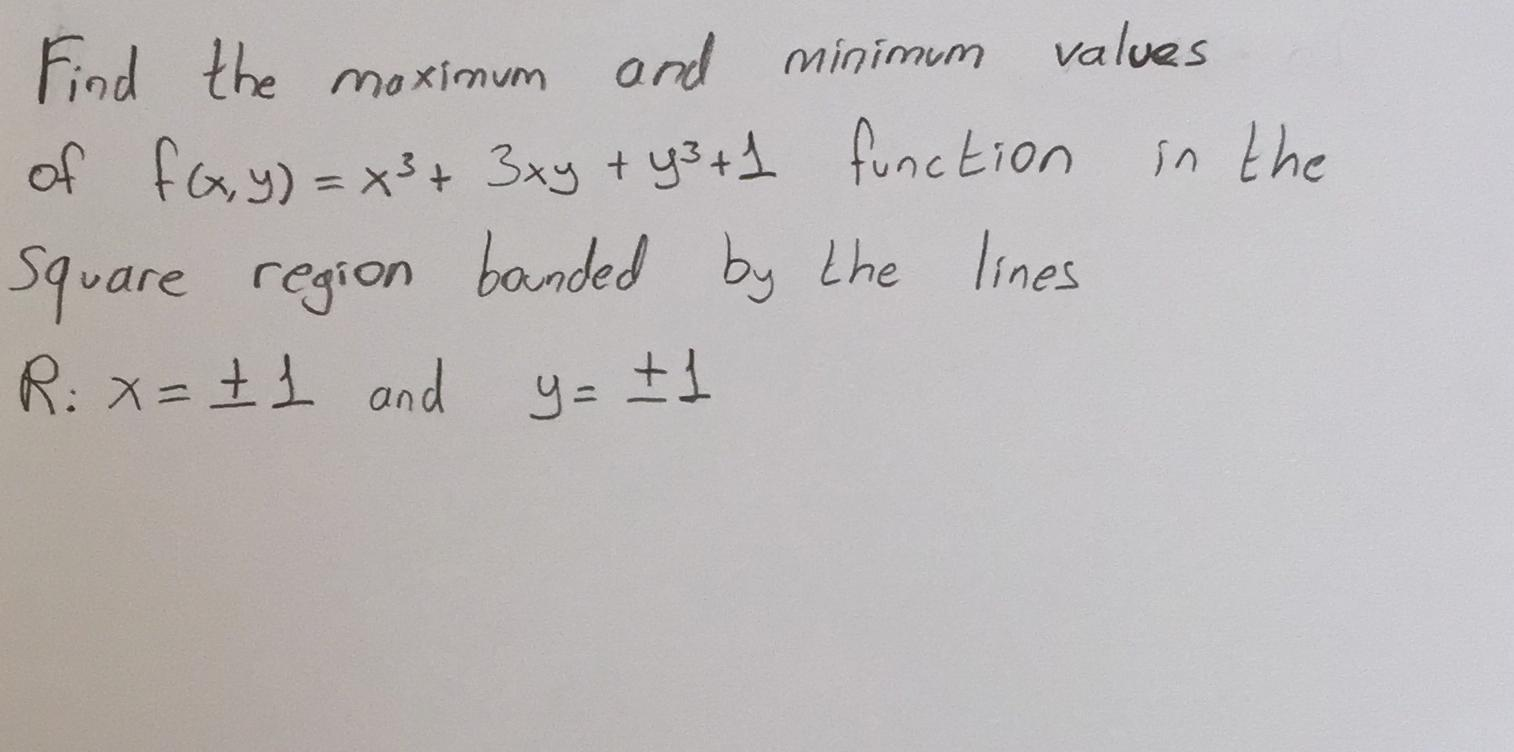 Find the maximum and minimum values
of f(x,y) = x³ + 3xy + y³ + 1 function in the
Square region bounded by the lines
R: x = ±1 and y = ±1